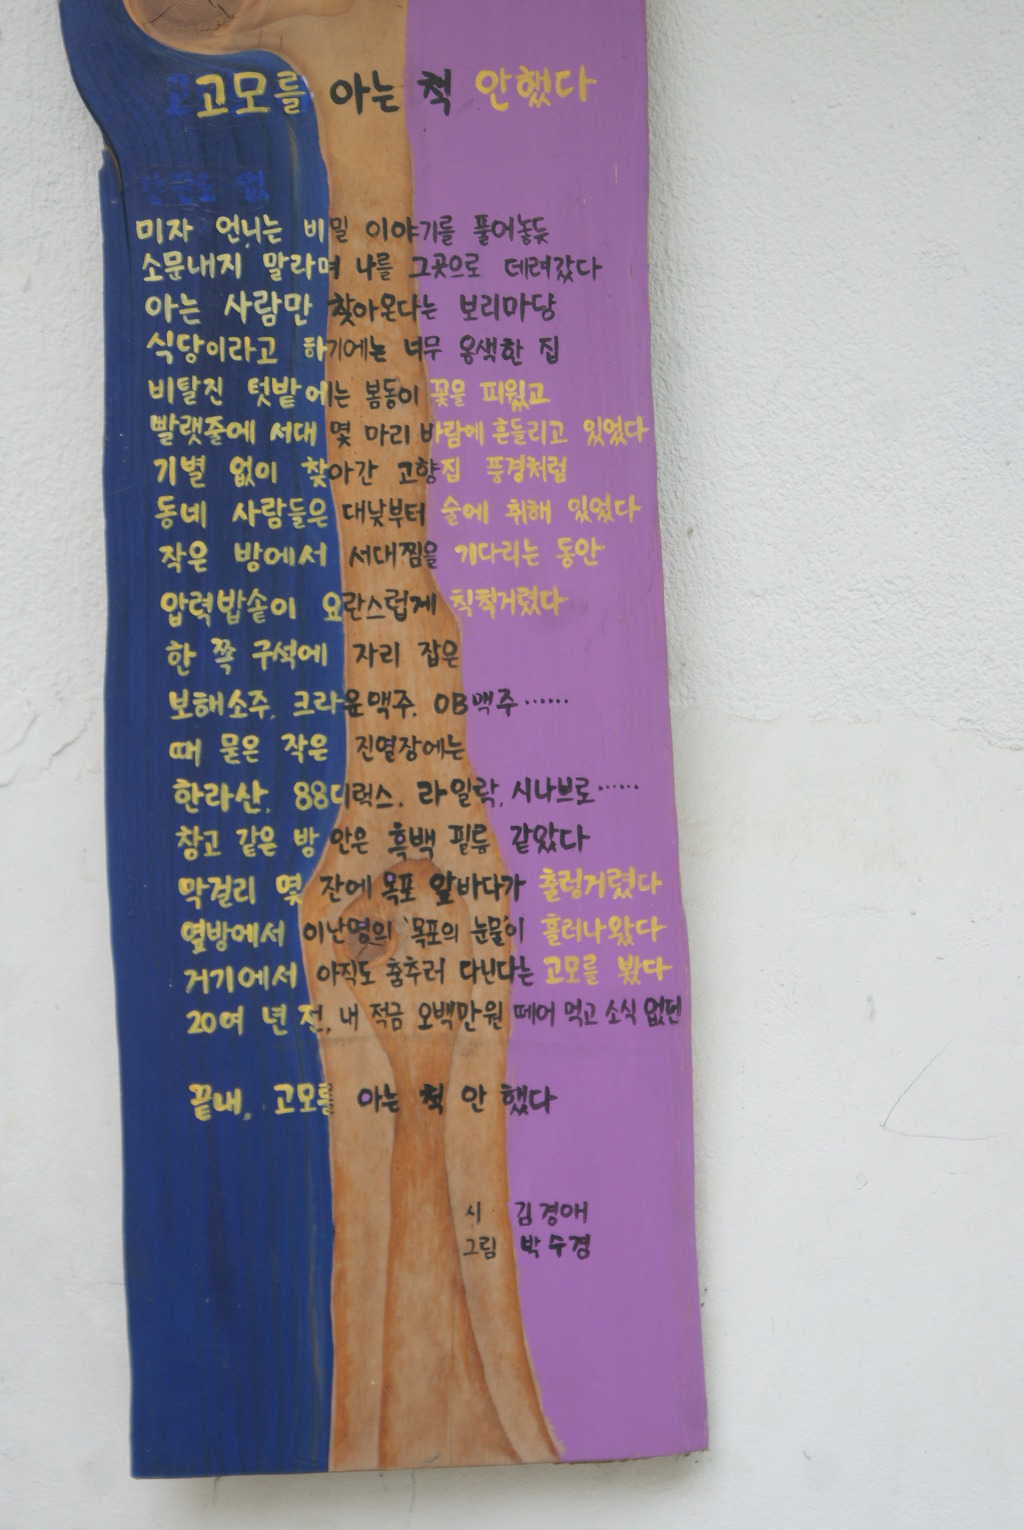 고모를 아는 척 안했다
미자 언니는 비밀 이야기를 풀어놓듯
소문내지 말라며 나를 그곳으로 데려갔다
아는 사람만 찾아온다는 보리마당
식당이라고 하기에는 너무 옹색한 집
비탈진 텃밭에는 봄동이 꽃을 피웠고
빨랫줄에 서대 몇 마리 바람에 흔들리고 있었다
기별 없이 찾아간 고향집 풍경처럼
동네 사람들은 대낮부터 술에 취해 있었다
작은 방에서 서대찜을 기다리는 동안
압력밥솥이 요란스럽게 칙칙거렸다
한 쪽 구석에 자리 잡은
보해소주, 크라운맥주, OB맥주……
때 묻은 작은 진열장에는
한라산, 88디럭스, 라일락, 시나브로……
창고 같은 방 안은 흑백 필름 같았다
막걸리 몇 잔에 목포 앞바다가 출렁거렸다
옆방에서 이난영의 '목포의 눈물'이 흘러나왔다
거기에서 아직도 춤추러 다닌다는 고모를 봤다
20여 년 전, 내 적금 오백만원 떼어 먹고 소식 없던
끝내, 고모를 아는 척 안 했다
시 김경애
그림 박수경